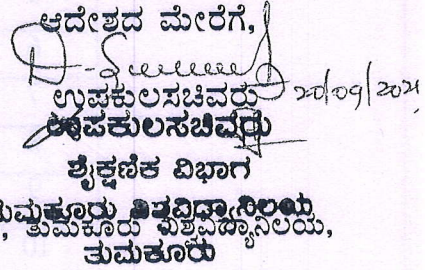 ಆದೇಶದ ಮೇರೆಗೆ,
20/09/2021
ಉಪಕುಲಸಚಿವರು
ಉಪಕುಲಸಚಿವರು
ಶೈಕ್ಷಣಿಕ ವಿಭಾಗ
ತುಮಕೂರು ವಿಶ್ವವಿದ್ಯಾನಿಲಯ
ತುಮಕೂರು ವಿಶ್ವವಿದ್ಯಾನಿಲಯ,
ತುಮಕೂರು